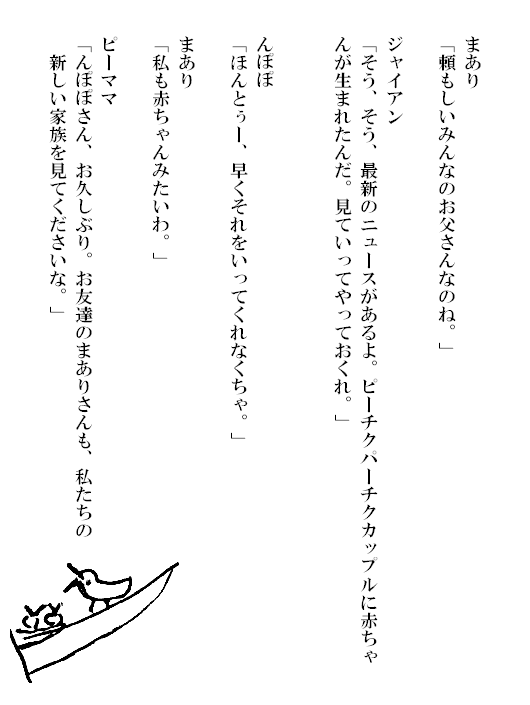 まあり
「頼もしいみんなのお父さんなのね。」
ジャイアン
「そう、そう、最新のニュースがあるよ。ピーチクパーチクカップルに赤ちゃ
んが生まれたんだ。見ていってやっておくれ。」
んぽぽ
「ほんとぅー、早くそれをいってくれなくちゃ。」
まあり
「私も赤ちゃんみたいわ。」
ピーママ
「んぽぽさん、お久しぶり。お友達のまありさんも、私たちの
新しい家族を見てくださいな。」